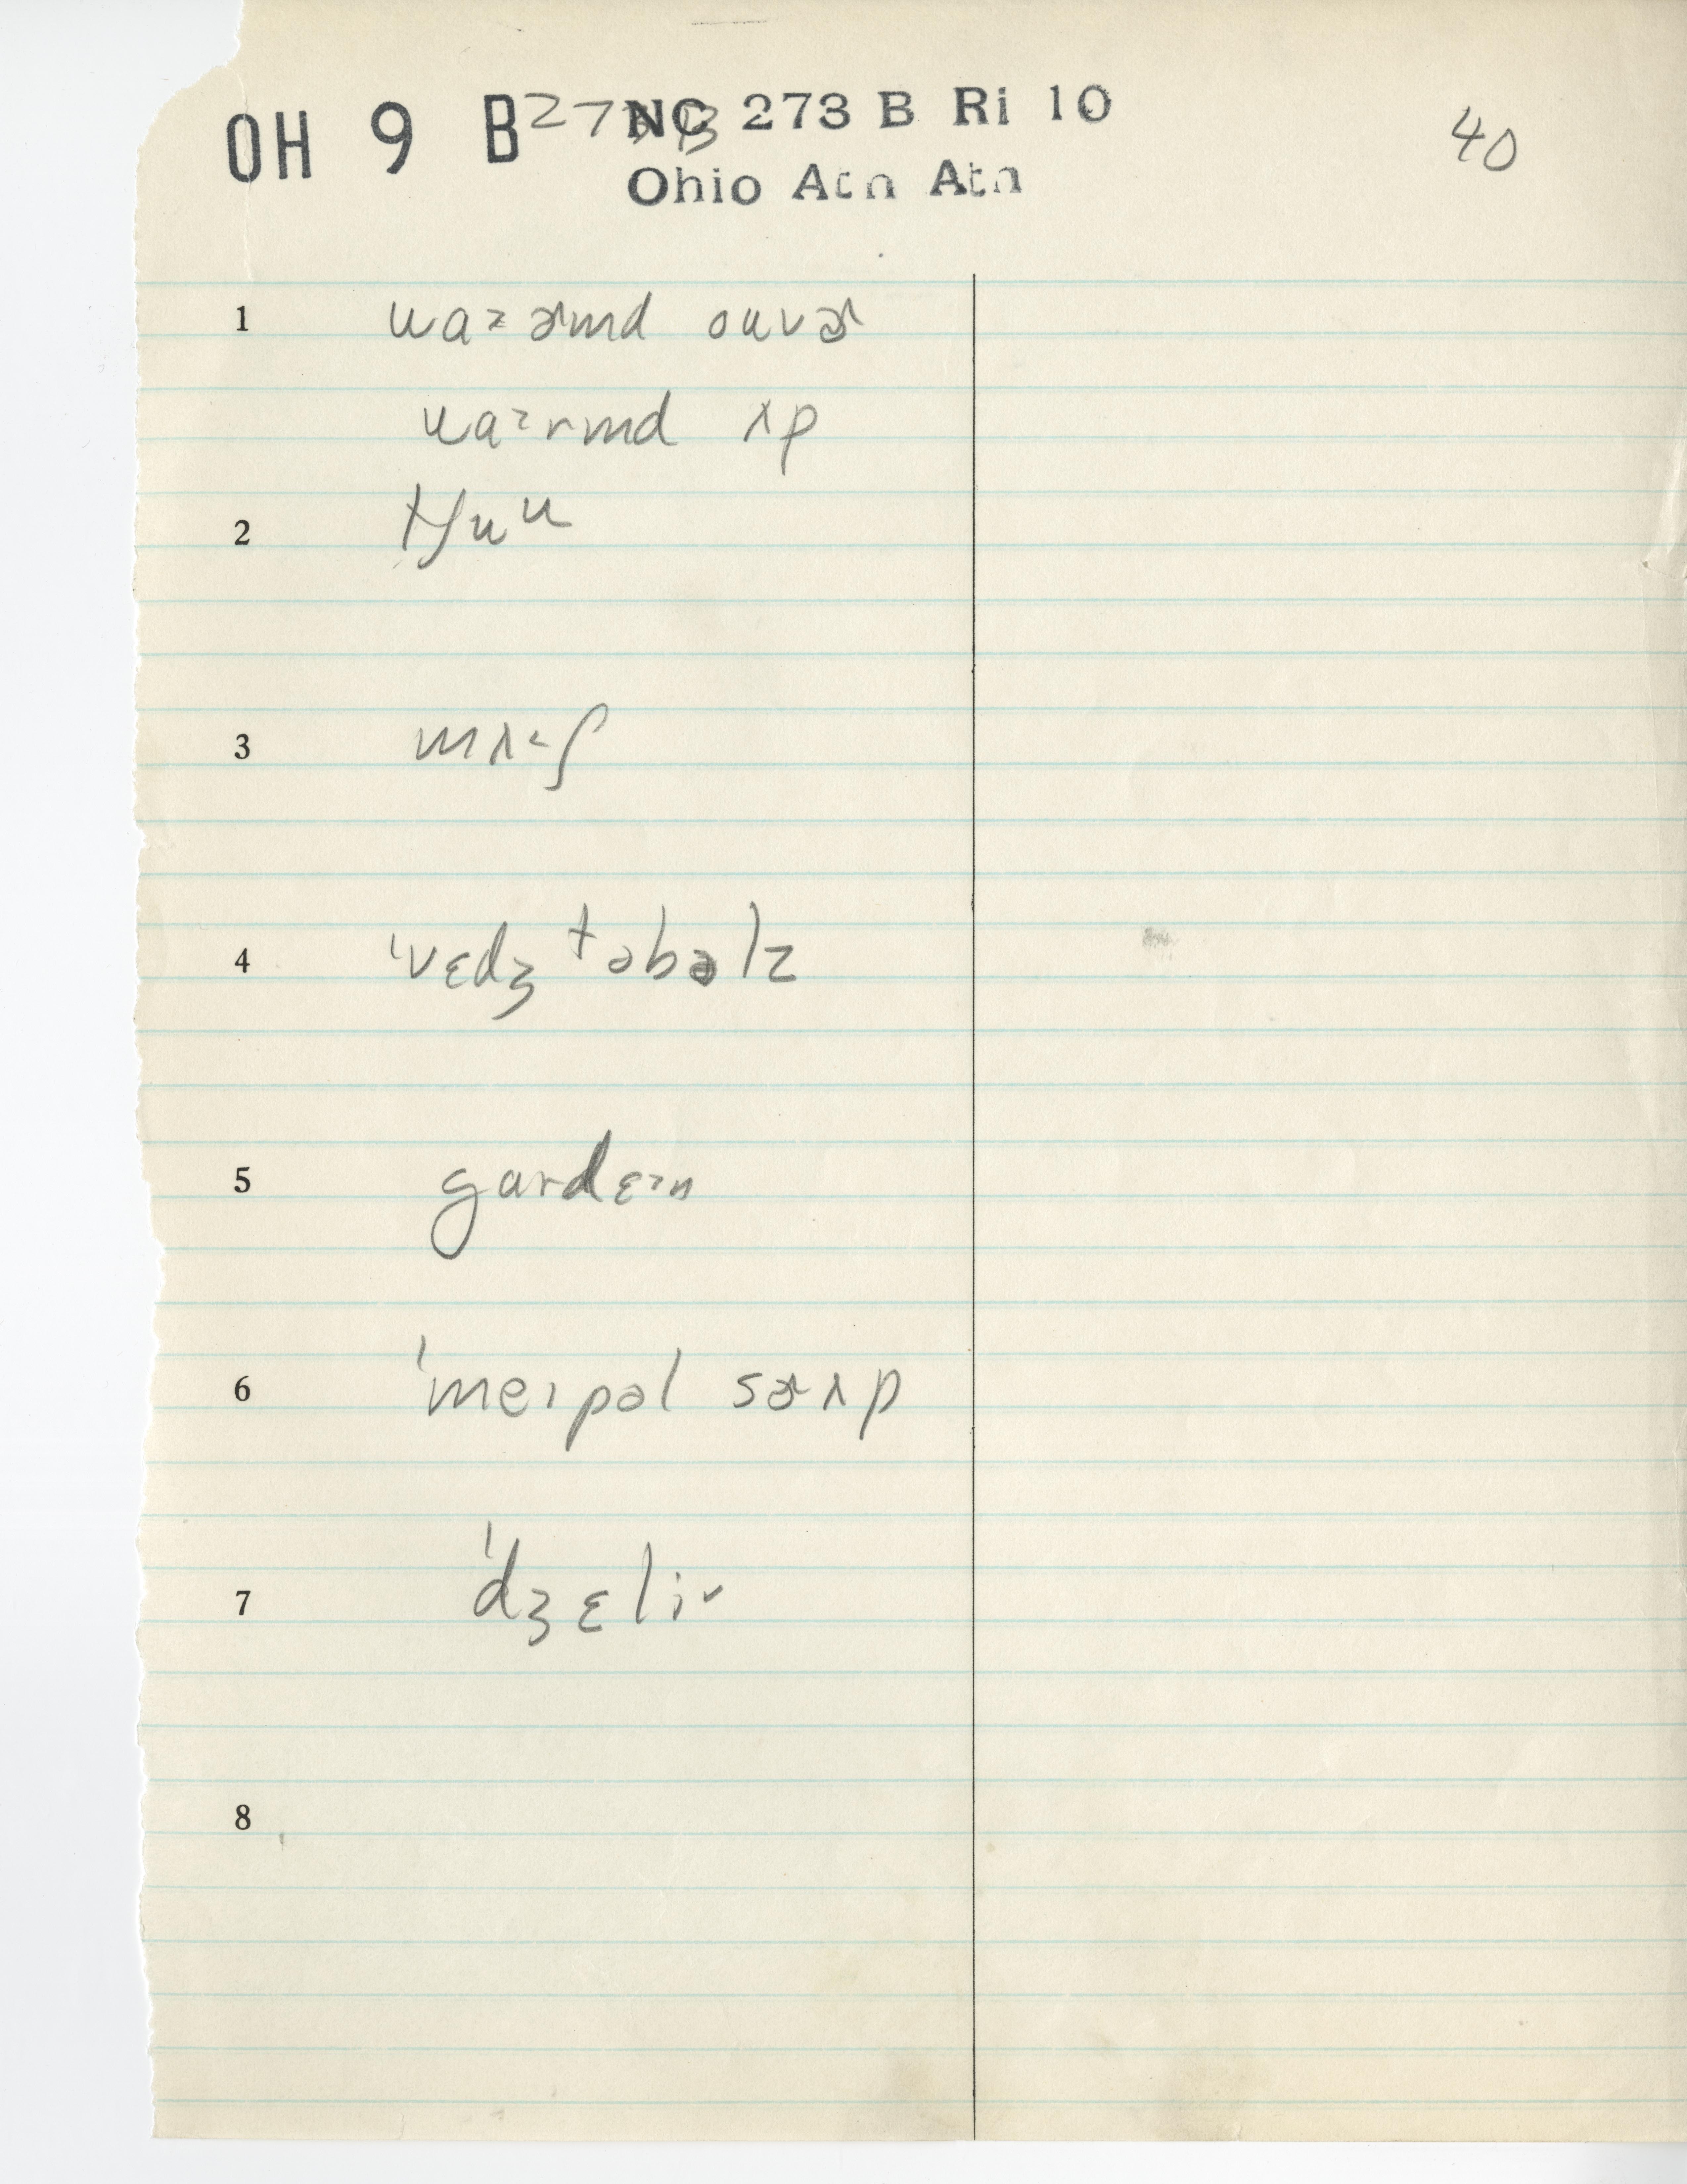 OH 9 B 27 NC 273 B Ri 10
Ohio Atn Atn
40
1 wa˃ɚmd ouvɚ
wa˃rmd ʌp
2 tʃuᵘ
3 mʌ˂ʃ
4 'vɛdʒtəbəlz
5 gardɛ˃n
6 'meɪpəl sɚʌp
7 'dʒɛli˅
8